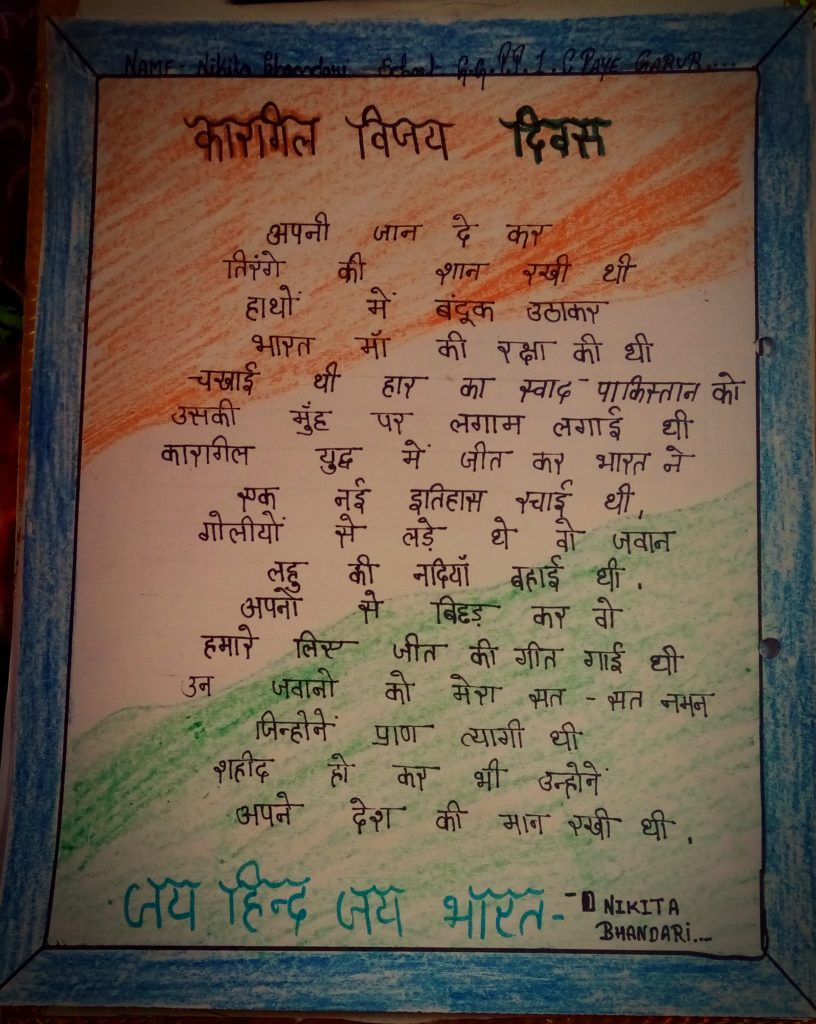 NAME- Nikita Bhandari School G.G.P.P.I.C PAYE GARUR....
कारगिल विजय दिवस
अपनी जान दे कर
तिरंगे की शान रखी थी
हाथों में बंदूक उठाकर
भारत माँ की रक्षा की थी
चखाई थी हार का स्वाद पाकिस्तान को
उसकी मुँह पर लगाम लगाई थी
कारागिल युद्ध में जीत कर भारत ने
एक नई इतिहास रचाई थी,
गोलीयों से लड़े थे वो जवान
लहु की नदियाँ बहाई थी.
अपनो से बिछड़ कर वो
हमारे लिए जीत की गीत गाई थी
उन जवानो को मेरा सत - सत नमन
जिन्होनें प्राण त्यागी थी
शहीद हो कर भी उन्होनें
अपने देश की मान रखी थी.
जय हिन्द जय भारत-
- NIKITA
BHANDARI...